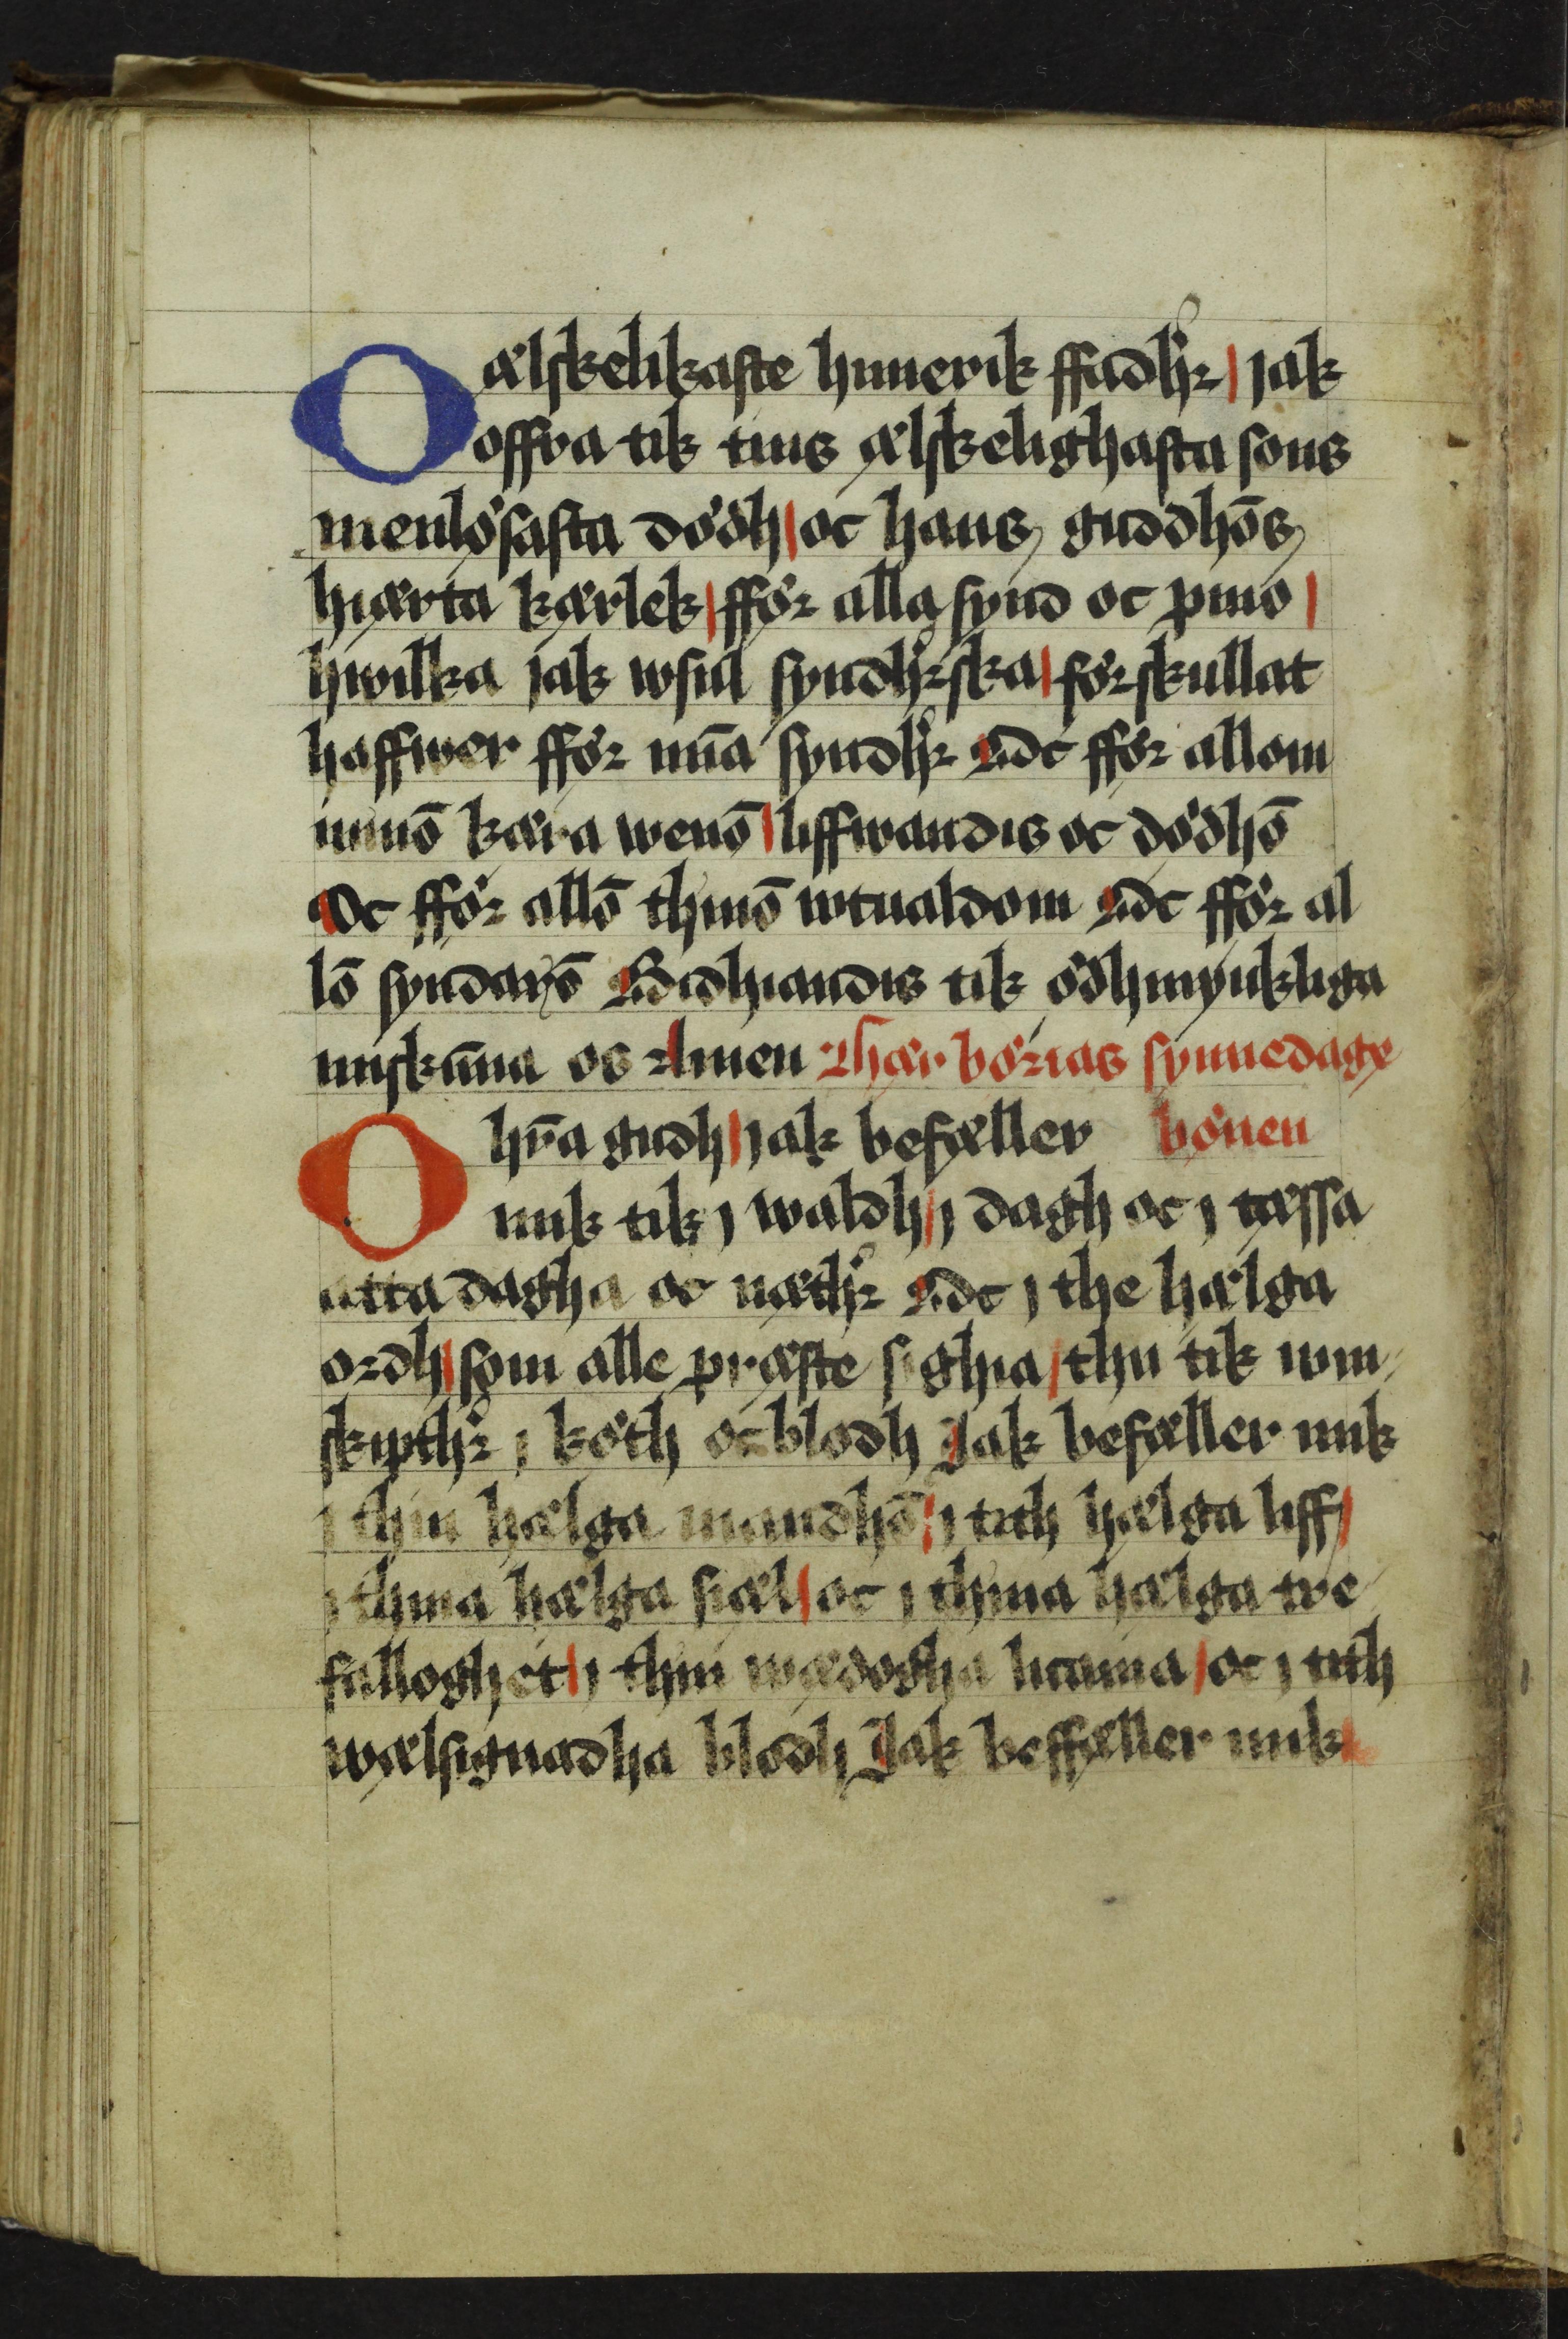 O ælskelikaste himerik ffadhr | jak
offra tik tins ælskelighasta sons
menlösasta dödh | oc hans guddhōs
hiærta kærlek | fför alla synd oc pino |
hwilka jak wsul syndhrska | förskullat
haffwer ffør mīa syndhr Oc ffør allom
mīnō kæra wenō | liffwandis oc dödhō
Oc ffør allō thinō wtualdom Oc ffør al
lō syndarō Bidhiandis tik ödhmyukliga
miskūna os Amen Thær börias synnedagx
O hr̄a gudh | jak befæller bönen
mik tik j waldh | j dagh oc j tæssa
atta dagha oc næthr Oc j the hælga
ordh | som alle præste sighia | thu tik wm
skipthr j köth oc blodh Jak befæller mik
j thin hælga mandhō | j tith hælga liff |
j thina hælga siæl | oc j thina hælga tre
falloghet | j thin wærdogha licama | oc j tith
wælsignadha blodh Jak beffæller mik